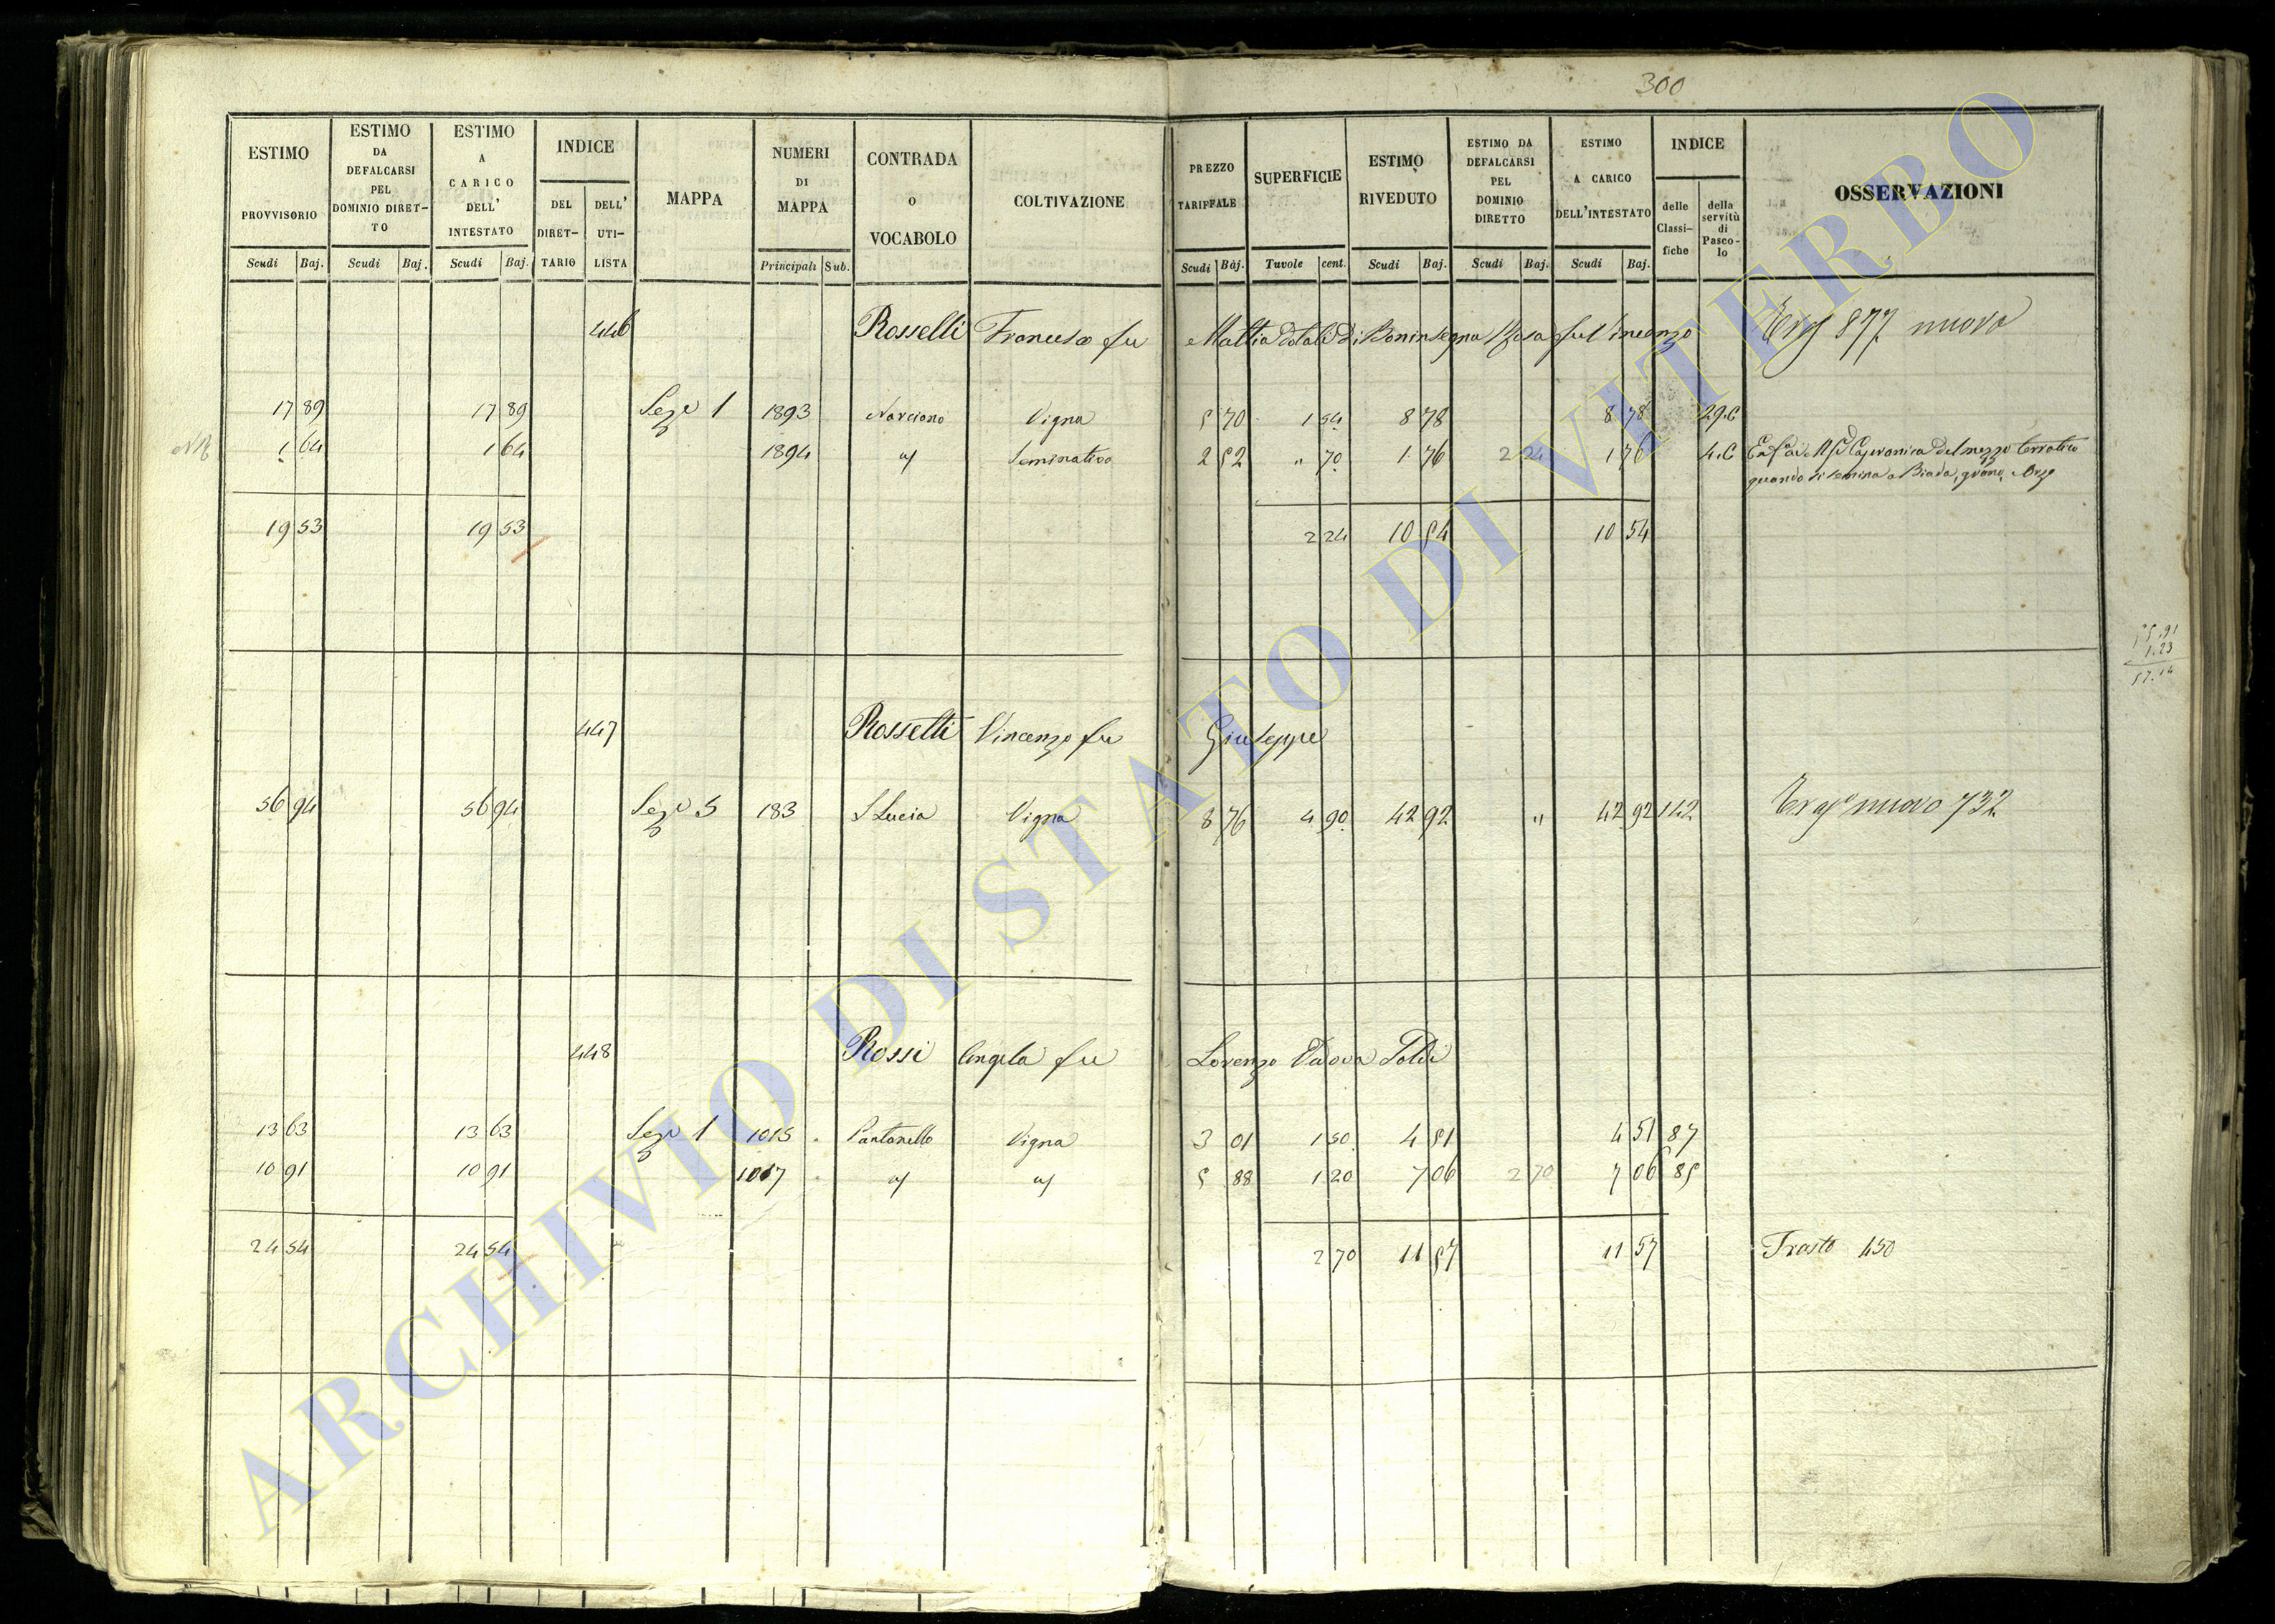 300
ESTIMO PROVVISORIO
ESTIMO DA DEFALCARSI PEL DOMINIO DIRET-TO
ESTIMO A CARICO DELL' INTESTATO
INDICE
DEL DIRET-TARIO
DELL' UTI-LISTA
MAPPA
NUMERI DI MAPPA
CONTRADA O VOCABOLO
COLTIVAZIONE
PREZZO TARIFFALE
SUPERFICIE
ESTIMO RIVEDUTO
ESTIMO DA DEFALCARSI PEL DOMINIO DIRETTO
ESTIMO A CARICO DELL'INTESTATO
INDICE
delle Classi-fiche
della servitù di Pasco-lo
OSSERVAZIONI
Scudi Baj. Scudi Baj. Scudi Baj. Principali Sub. Scudi Baj. Tavole cent. Scudi Baj. Scudi Baj. Scudi Baj.
446 Rosselli Francesco fu Mattia dotali di Boninsegna Rosa fu Vincenzo 877 nuovo
17 89 17 89 Sezе 1 1893 Vigna 5 70 1 54 8 78 8 78 29.C
1 64 1 64 1894 Seminativo 2 52 " 70 1 76 2 24 1 76 4.C del mezzo terratico
quando si semina a Biada, grano, Orzo
19 53 19 53 2 24 10 54 10 54
55.91
1.23
57.14
447 Rossetti Vincenzo fu Giuseppe
56 94 56 94 Seze 5 183 S Lucia Vigna 8 76 4 90 42 92 " 42 92 142 nuovo 732
448 Rossi Angela fu Lorenzo Vedova Toldi
13 63 13 63 Seze 1 1015 Pantanello Vigna 3 01 1 50 4 51 4 51 87
10 91 10 91 1017 5 88 1 20 7 06 2 70 7 06 85
24 54 24 54 2 70 11 57 11 57 Trasto 450
ARCHIVIO DI STATO DI VITERBO